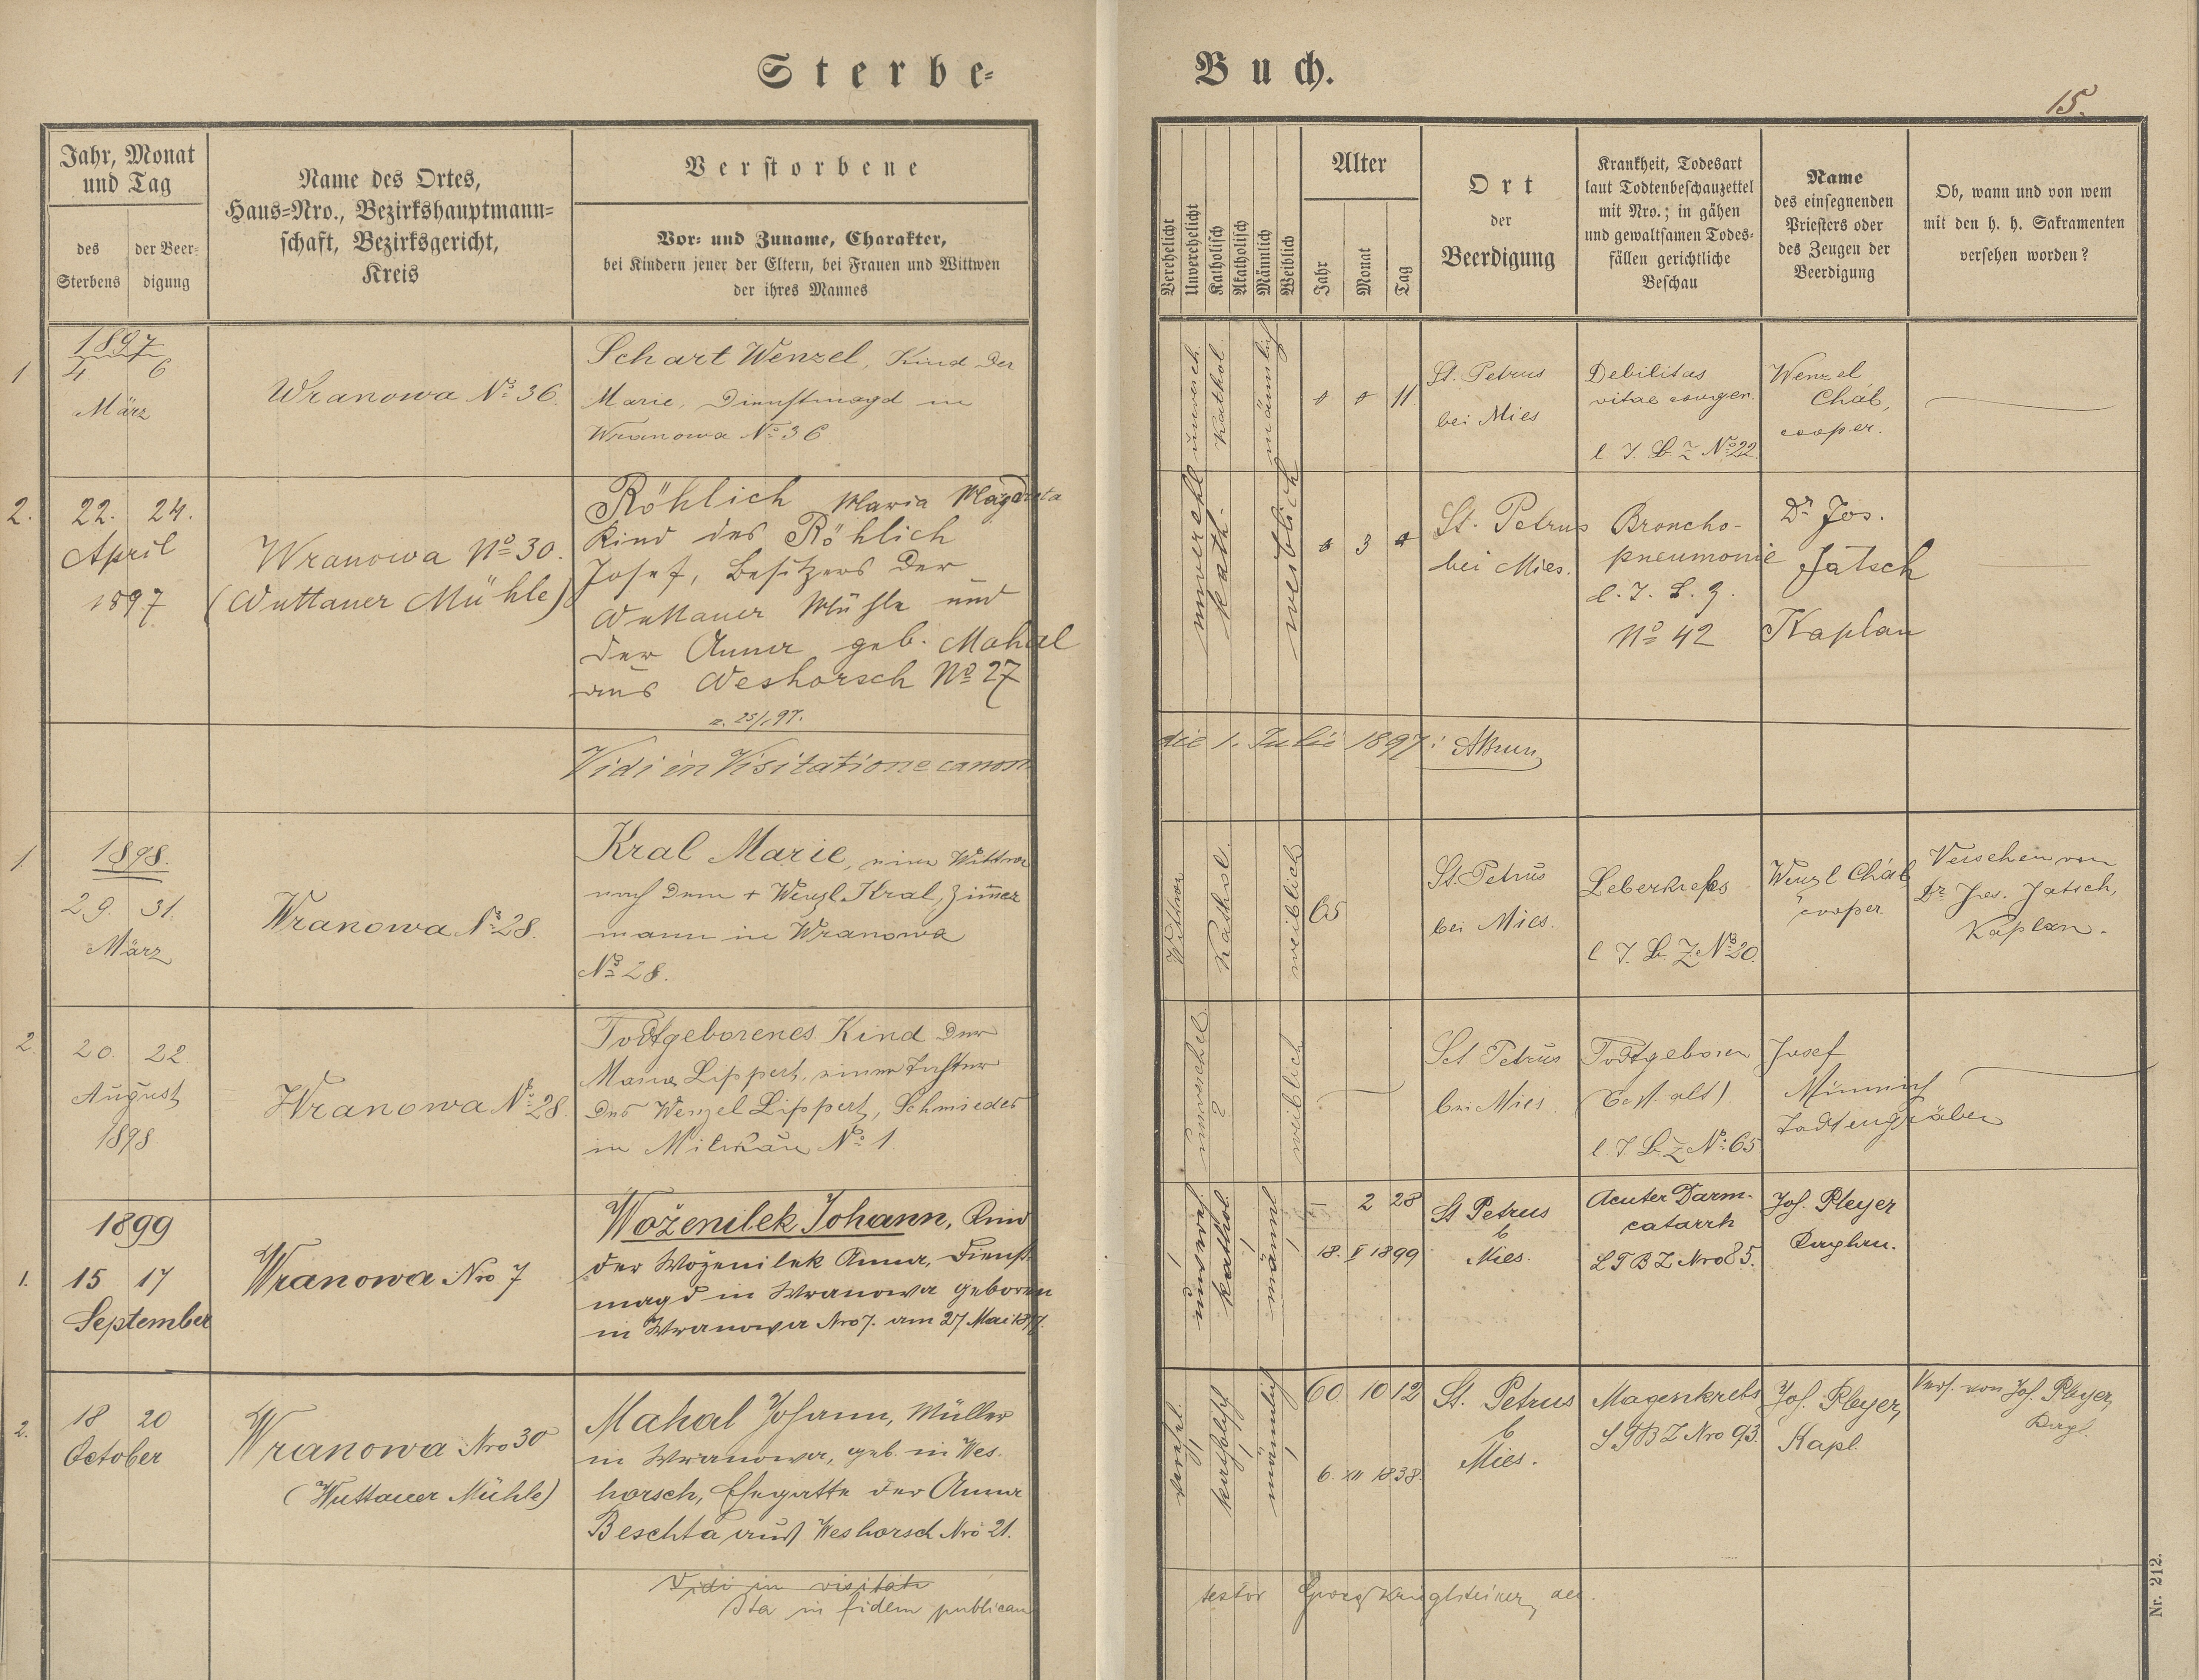 Sterbe-
Buch.
15.
Jahr, Monat
und Tag
des
Sterbens
der Beer-
digung
Name des Ortes,
Haus-Nro., Bezirkshauptmann-
schaft, Bezirksgericht,
Kreis
Verstorbene
Vor- und Zuname, Charakter,
bei Kindern jener der Eltern, bei Frauen und Wittwen
der ihres Mannes
Verehelicht
Unverehelicht
Katholisch
Akatholisch
Männlich
Weiblich
Alter
Jahr
Monat
Tag
Ort
der
Beerdigung
Krankheit, Todesart
laut Todtenbeschauzettel
mit Nro.; in gähen
und gewaltsamen Todes-
fällen gerichtliche
Beschau
Name
des einsegnenden
Priesters oder
des Zeugen der
Beerdigung
Ob, wann und von wem
mit den h. h. Sakramenten
versehen worden?
1
1897
4 6
März
Wranowa No 36.
Schart Wenzel, Kind der
Marie, Dienstmagd in
Wranowa No 36
unvereh.
Kathol
männlich
0 0 11
St. Petrus
bei Mies
Debilitas
vitae congen.
l. T. B. Z No 22.
Wenzel
Cháb,
cooper.
2.
22. 24.
April
1897
Wranowa No 30.
(Wuttauer Mühle)
Röhlich Maria Magdreta
Kind des Röhlich
Josef, Besitzers der
Wuttauer Mühle und
der Anna geb. Mahal
aus Weshorsch No 27
unverehl
kath.
weiblich
0 3 0
St. Petrus
bei Mies.
Broncho-
pneumonie
l. T. B. Z.
No 42
Dr Jos.
Jatsch
Kaplan
Vidi in Visitatione canon
die 1. Julii 1897:
1.
1898.
29. 31.
März
Wranowa No 28.
Kral Marie, eine Wittwe
nach dem + Wenzl Kral, Zimer
mann in Wranowa
No 28.
Wittwe
Kathol.
weiblich
65
St. Petrus
bei Mies.
Leberkrebs
l T. B. Z No 20.
Wenzl Cháb
cooper.
Versehen von
Dr Jos. Jatsch,
Kaplan.
2.
20. 22.
August
1898
Wranowa No 28.
Todtgeborenes Kind der
Maria Lippert, einer Tochter
des Wenzel Lippert, Schmiedes
in Milikau No 1
unverehel.
?
weiblich
Sct Petrus
bei Mies.
Todtgeboren
l T. B. Z No 65
Josef
Todtengräber
1.
1899
15 17
September
Wranowa Nro 7
Woženilek Johann, Kind
der Woženilek Anna, Dienst
magd in Wranowa geboren
in Wranowa Nro 7. am 27 Mai 1877.
unvereh.
kathol.
männl
2 28
18. V 1899
St Petrus
b
Mies.
Acuter Darm-
catarrh
L T B Z Nro 85.
Jos. Pleyer
Kaplan.
2.
18 20
October
Wranowa Nro 30
(Wuttauer Mühle)
Mahal Johann, Müller
in Wranowa, geb. in Wes-
horsch, Ehegatte der Anna
Beschta aus Weshorsch Nro 21.
vereh.
katholisch
männlich
60 10 12
6. XII 1838.
St. Petrus
b
Mies.
Magenkrebs
L T B Z Nro 93.
Jos. Pleyer,
Kapl.
Vers. von Jos. Pleyer,
Kapl.
Vidi in visitati
Ita in fidem publicam
testor Georg Krieglsteiner,
Nr. 212.